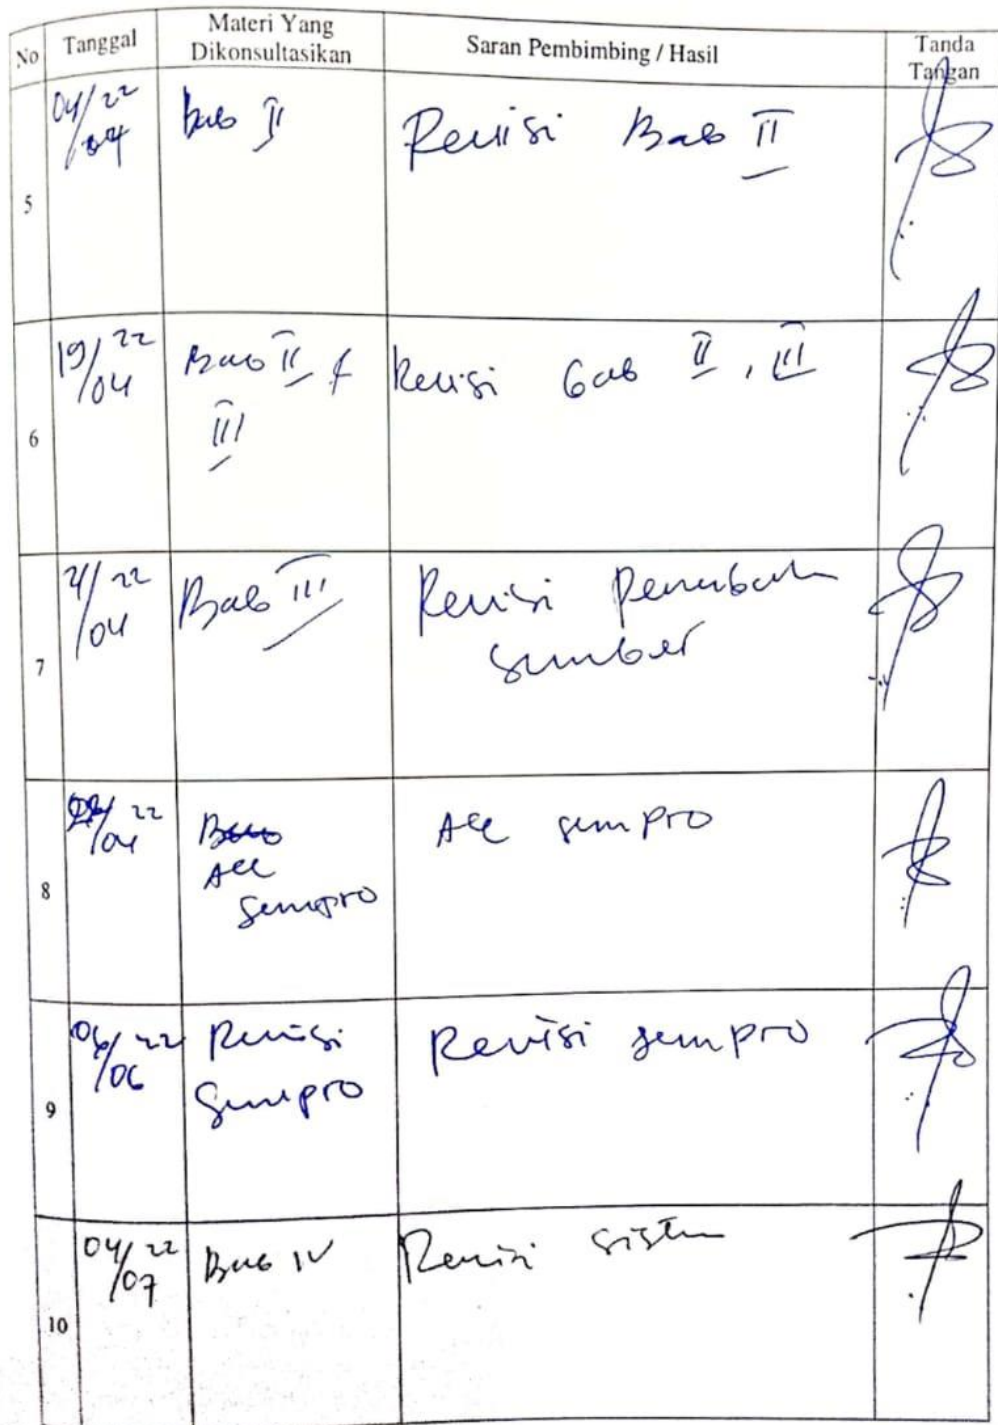 No Tanggal Materi Yang Dikonsultasikan Saran Pembimbing / Hasil Tanda Tangan
5 04/04 22 bab II Revisi Bab II
6 19/04 22 Bab II & III Revisi bab II, III
7 /04 22 Bab III Revisi sumber
8 /04 22 Acc sempro Acc sempro
9 06/06 22 Revisi Sempro Revisi sempro
10 04/07 22 Bab IV Revisi sistem